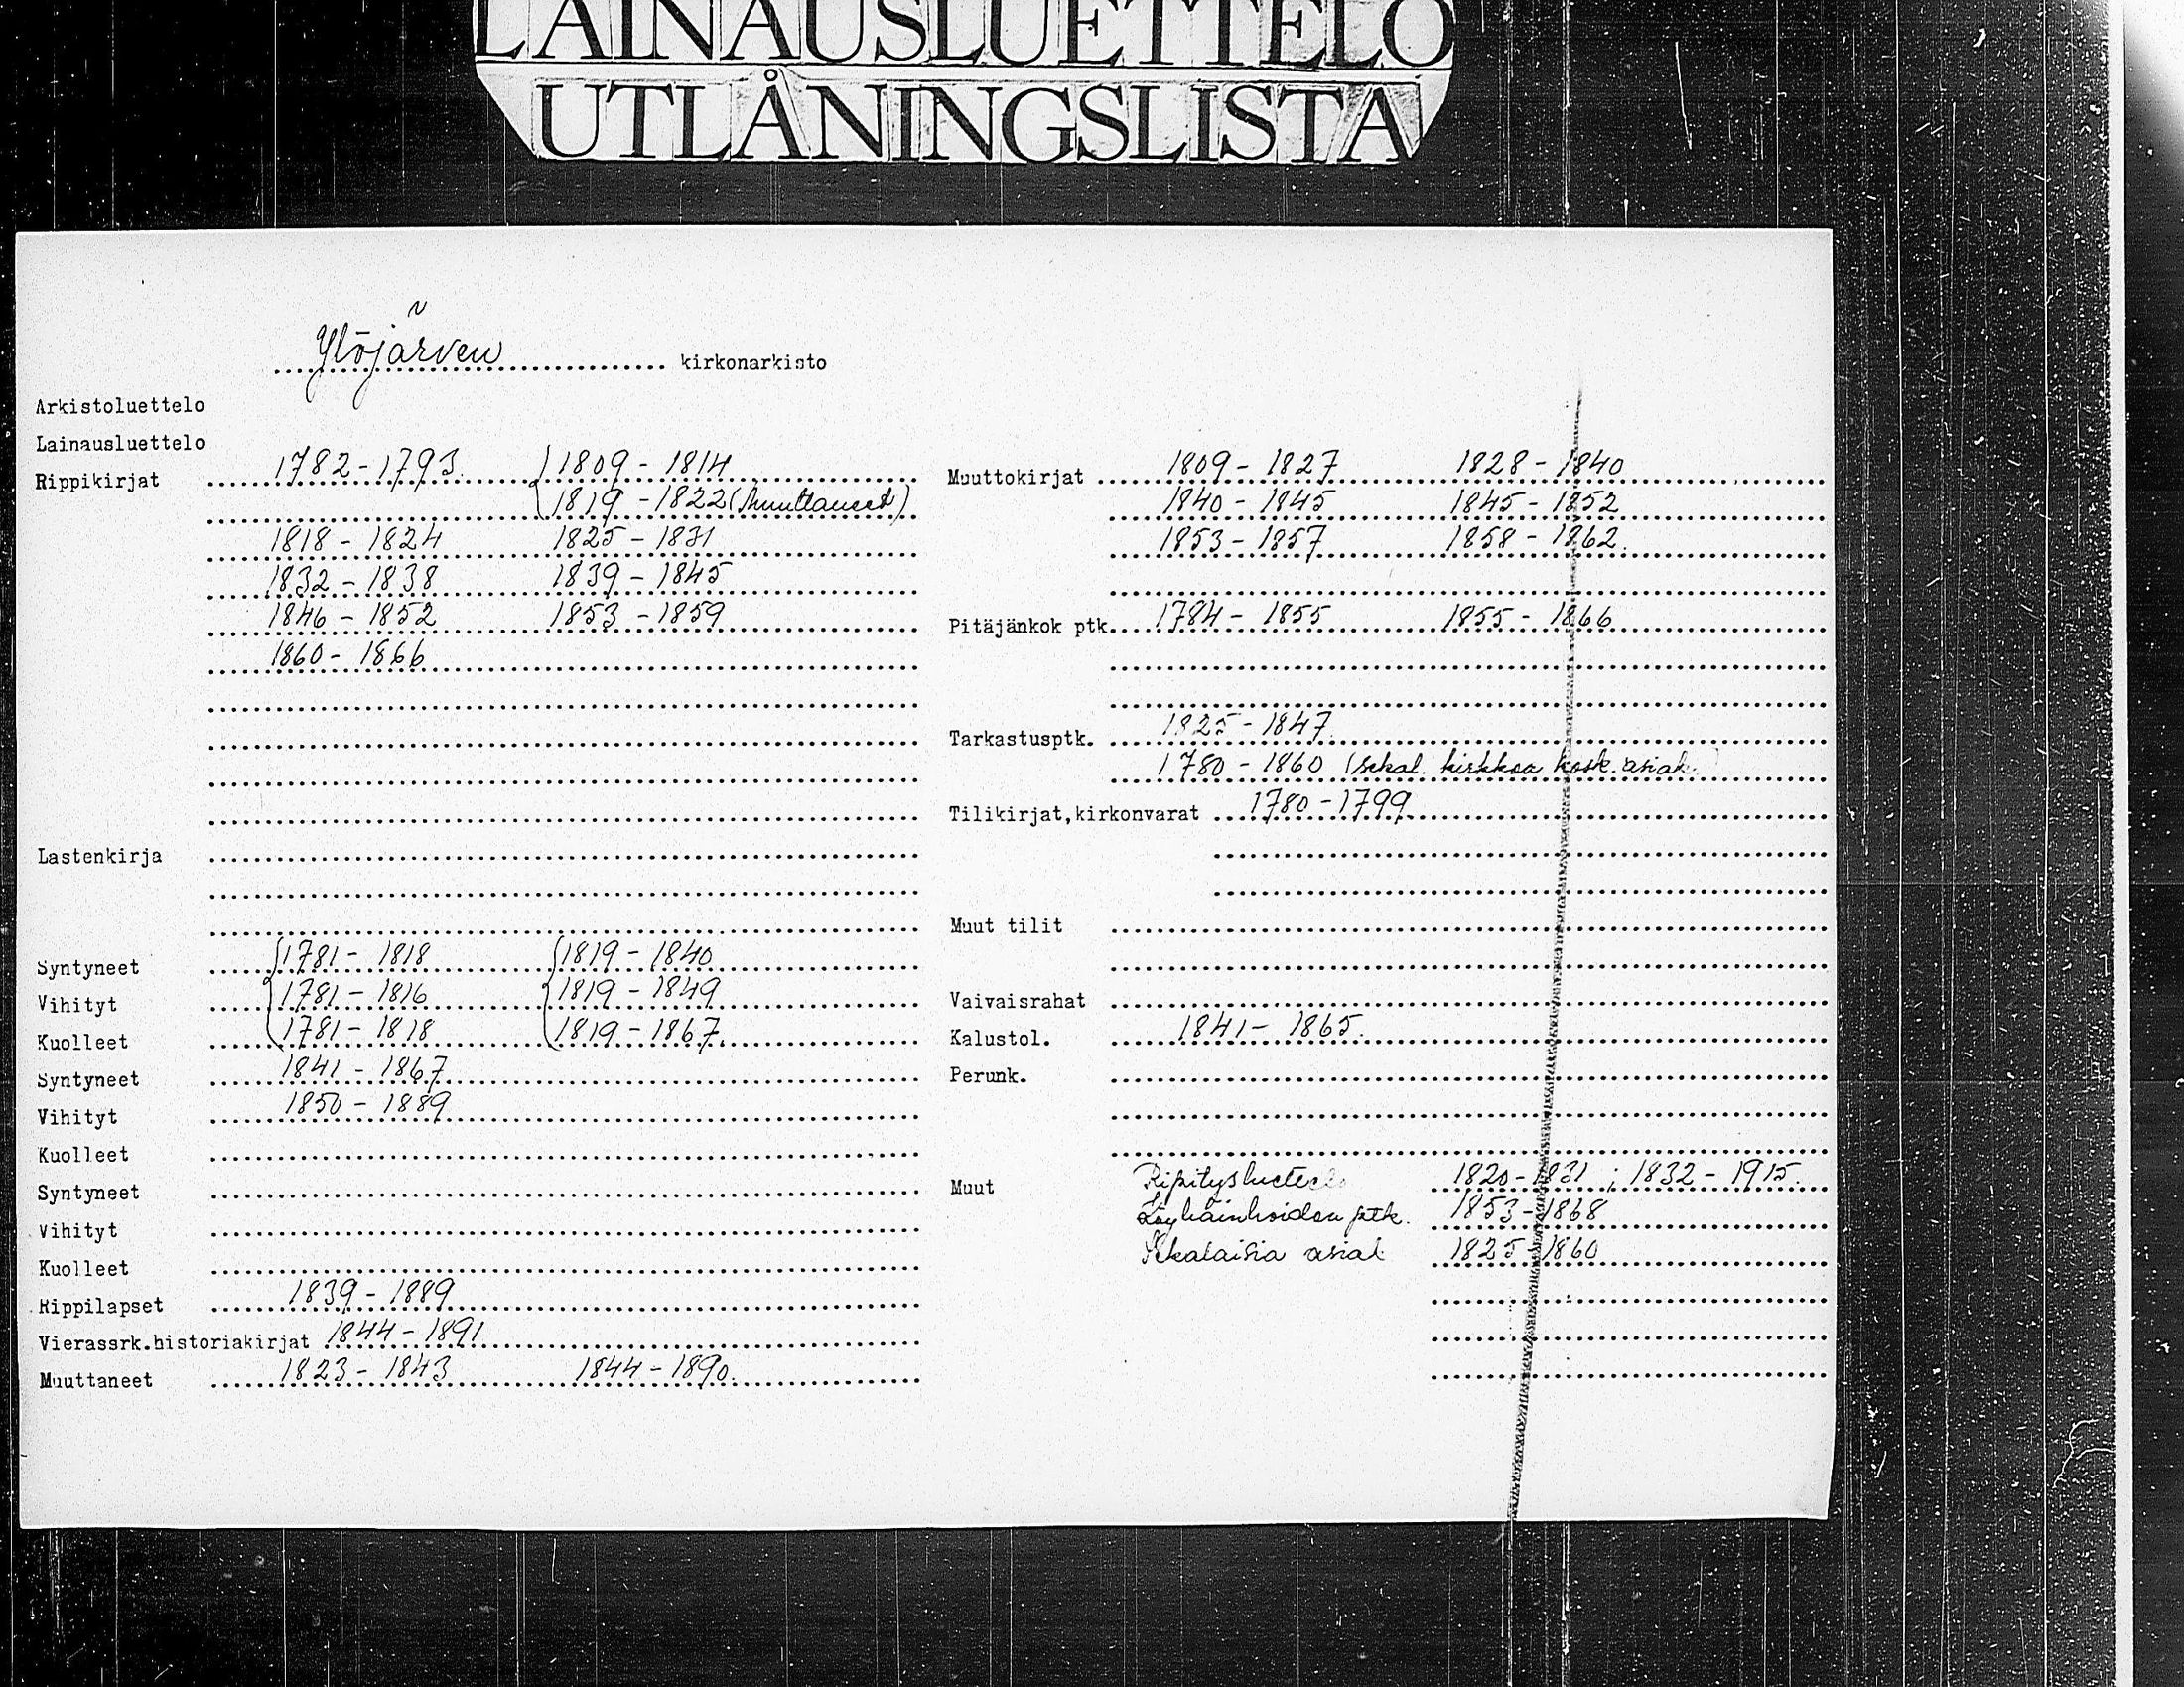 LAINAUSLUETTELO
UTLÅNINGSLISTA
Ylöjärven kirkonarkisto
Arkistoluettelo
Lainausluettelo
Rippikirjat 1782-1793. 1809-1814
1819-1822 (Muuttaneet)
1818-1824 1825-1831
1832-1838 1839-1845
1846-1852 1853-1859
1860-1866
Lastenkirja
Syntyneet 1781-1818 1819-1840
Vihityt 1781-1816 1819-1849
Kuolleet 1781-1818 1819-1867.
Syntyneet 1841-1867
Vihityt 1850-1889
Kuolleet
Syntyneet
Vihityt
Kuolleet
Rippilapset 1839-1889
Vierassrk.historiakirjat 1844-1891
Muuttaneet 1823-1843 1844-1890.
Muuttokirjat 1809-1827 1828-1840
1840-1845 1845-1852
1853-1857 1858-1862.
Pitäjänkok ptk. 1784-1855 1855-1866
Tarkastusptk. 1825-1847.
1780-1860 (sekal. kirkkoa kosk. asiak.)
Tilikirjat,kirkonvarat 1780-1799
Muut tilit
Vaivaisrahat
Kalustol. 1841-1865.
Perunk.
Muut Ripitysluettelo 1820-1831; 1832-1915.
Köyhäinhoidon ptk. 1853-1868
Sekalaisia asiak 1825-1860